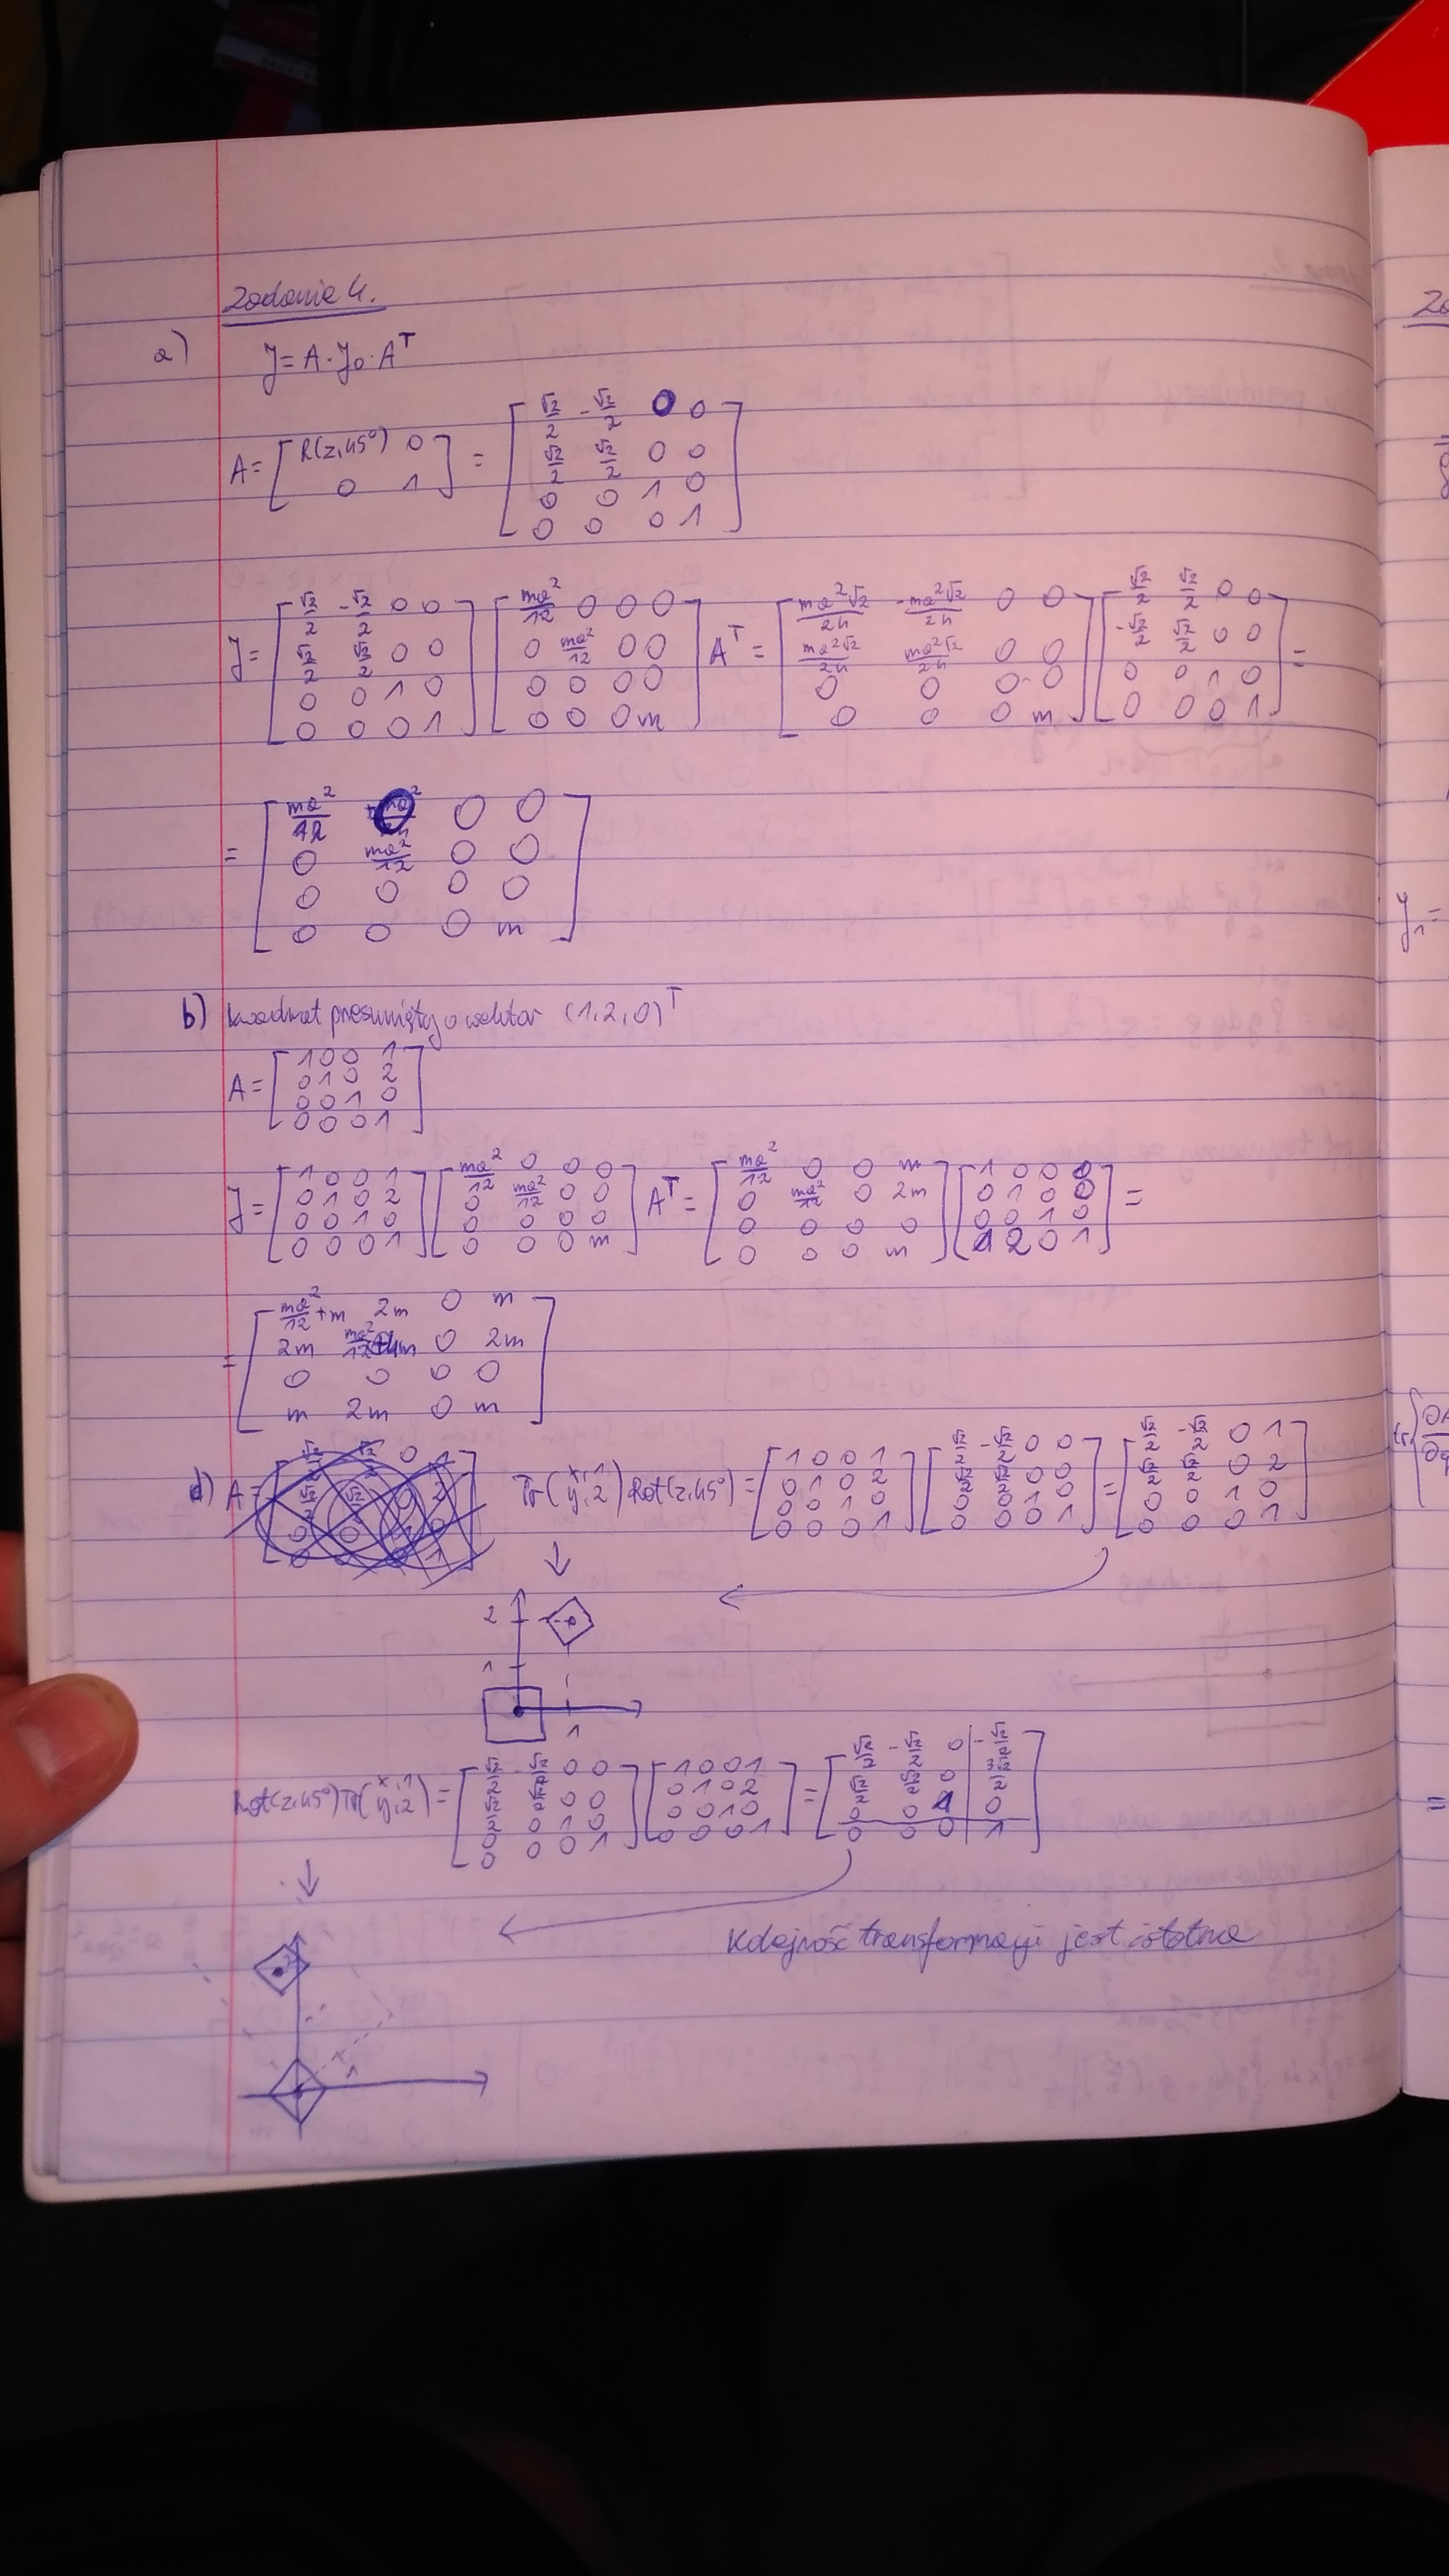 Zadanie 4.
a) J = A · J₀ · Aᵀ
A = [ R(z,45°) 0 ; 0 1 ] = [ √2/2 -√2/2 0 0 ; √2/2 √2/2 0 0 ; 0 0 1 0 ; 0 0 0 1 ]
J = [ √2/2 -√2/2 0 0 ; √2/2 √2/2 0 0 ; 0 0 1 0 ; 0 0 0 1 ] [ ma²/12 0 0 0 ; 0 ma²/12 0 0 ; 0 0 0 0 ; 0 0 0 m ] Aᵀ = [ ma²√2/24 -ma²√2/24 0 0 ; ma²√2/24 ma²√2/24 0 0 ; 0 0 0 0 ; 0 0 0 m ] [ √2/2 √2/2 0 0 ; -√2/2 √2/2 0 0 ; 0 0 1 0 ; 0 0 0 1 ] =
= [ ma²/12 0 0 0 ; 0 ma²/12 0 0 ; 0 0 0 0 ; 0 0 0 m ]
b) kwadrat przesunięty o wektor (1,2,0)ᵀ
A = [ 1 0 0 1 ; 0 1 0 2 ; 0 0 1 0 ; 0 0 0 1 ]
J = [ 1 0 0 1 ; 0 1 0 2 ; 0 0 1 0 ; 0 0 0 1 ] [ ma²/12 0 0 0 ; 0 ma²/12 0 0 ; 0 0 0 0 ; 0 0 0 m ] Aᵀ = [ ma²/12 0 0 m ; 0 ma²/12 0 2m ; 0 0 0 0 ; 0 0 0 m ] [ 1 0 0 0 ; 0 1 0 0 ; 0 0 1 0 ; 1 2 0 1 ] =
= [ ma²/12+m 2m 0 m ; 2m ma²/12+4m 0 2m ; 0 0 0 0 ; m 2m 0 m ]
d) A = Tr(x,1 y,2) Rot(z,45°) = [ 1 0 0 1 ; 0 1 0 2 ; 0 0 1 0 ; 0 0 0 1 ] [ √2/2 -√2/2 0 0 ; √2/2 √2/2 0 0 ; 0 0 1 0 ; 0 0 0 1 ] = [ √2/2 -√2/2 0 1 ; √2/2 √2/2 0 2 ; 0 0 1 0 ; 0 0 0 1 ]
2
1
1
Rot(z,45°) Tr(x,1 y,2) = [ √2/2 -√2/2 0 0 ; √2/2 √2/2 0 0 ; 0 0 1 0 ; 0 0 0 1 ] [ 1 0 0 1 ; 0 1 0 2 ; 0 0 1 0 ; 0 0 0 1 ] = [ √2/2 -√2/2 0 -√2/2 ; √2/2 √2/2 0 3√2/2 ; 0 0 1 0 ; 0 0 0 1 ]
Kolejność transformacji jest istotna
1